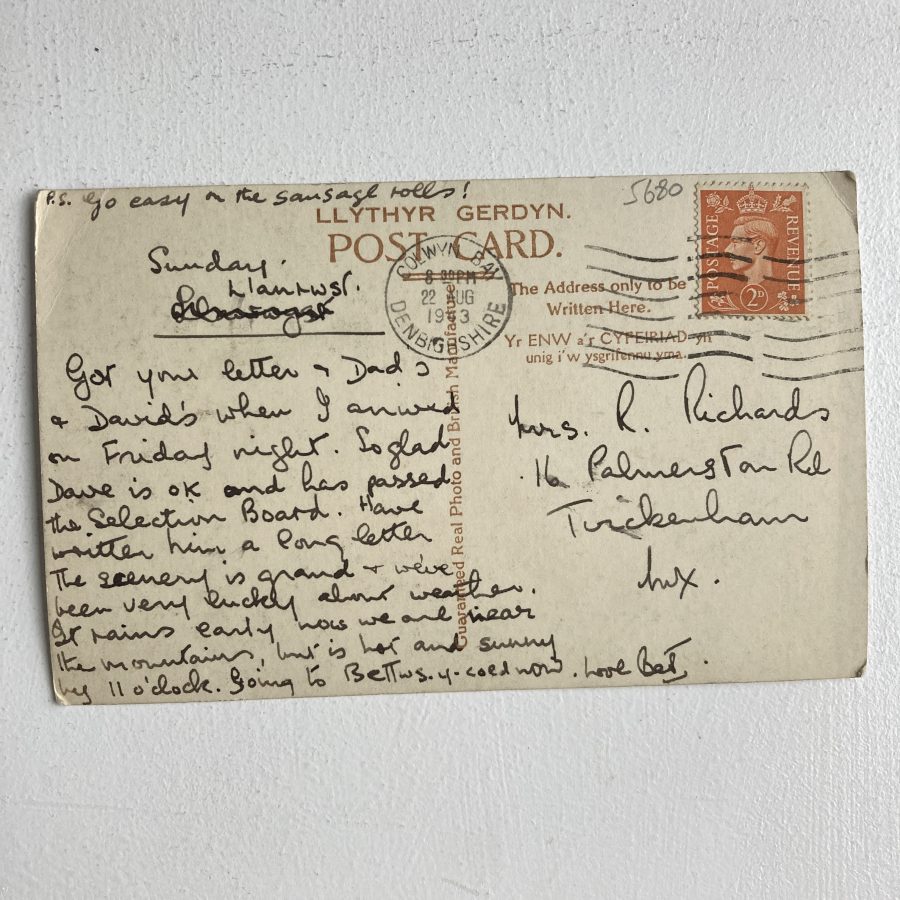 P.S. Go easy on the sausage rolls!
5680
LLYTHYR GERDYN.
POST CARD.
POSTAGE REVENUE
2D
COLWYN BAY
8 PM
22 AUG
1943
DENBIGHSHIRE
Sunday.
Llanrwst.
The Address only to be
Written Here.
Yr ENW a'r CYFEIRIAD yn
unig i'w ysgrifennu yma.
Guaranteed Real Photo and British Manufacture
Got your letter + Dad's
+ David's when I arrived
on Friday night. So glad
Dave is OK and has passed
the Selection Board. Have
written him a long letter
The scenery is grand + we've
been very lucky about weather.
It rains early now we are near
the mountains, but is hot and sunny
by 11 o'clock. Going to Bettws-y-coed now. Love Bet.
Mrs. R. Richards
16 Palmerston Rd
Twickenham
Mx.